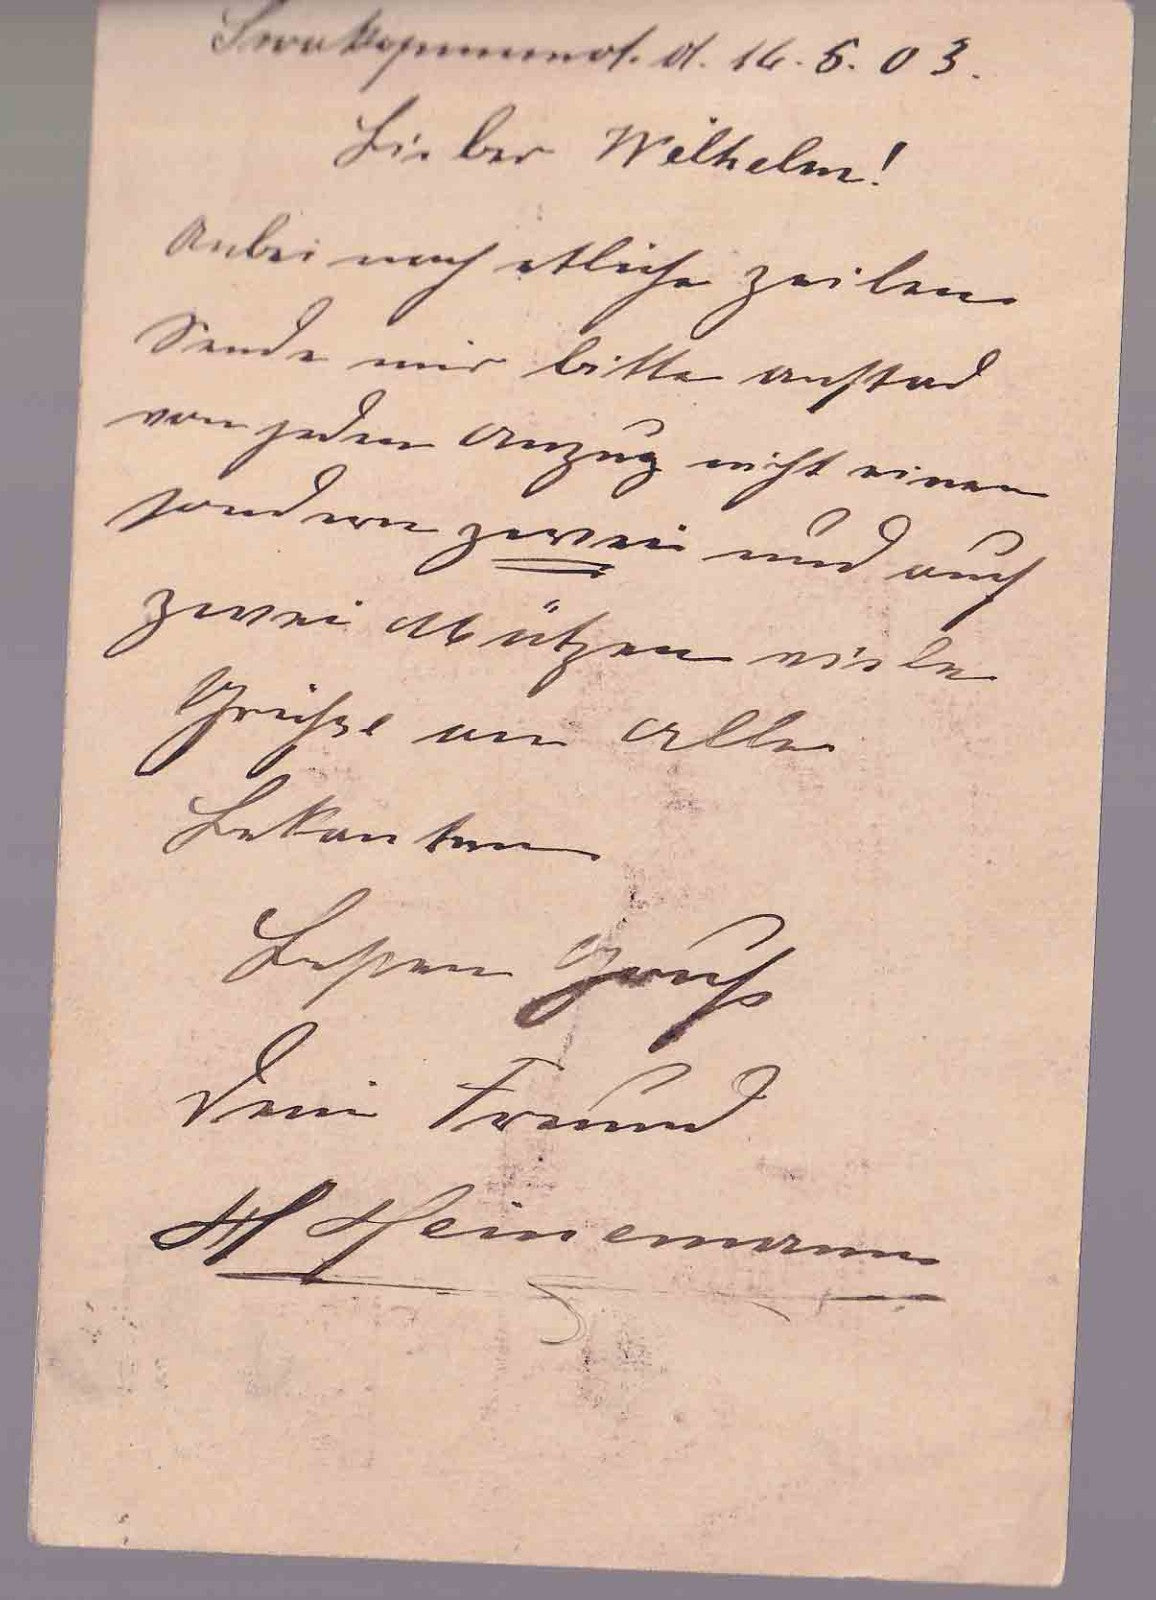 Swakopmund. d. 16. 5. 03.
Lieber Wilhelm!
Anbei noch etliche Zeilen
Sende mir bitte anstad
von jeden Anzug nicht einen
sondern zwei und auch
zwei Mützen viele
Grüße an Alle
Bekanten
Besten Gruß
Dein Freund
H Heinemann